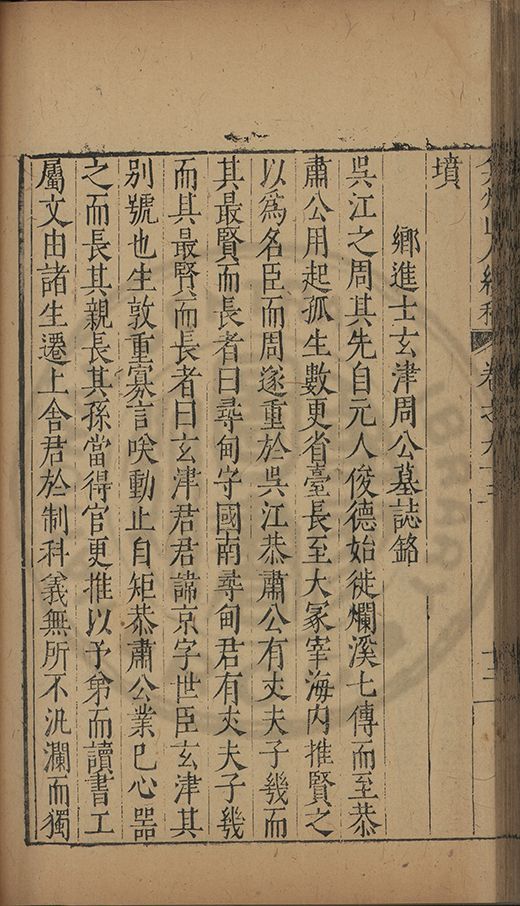 弇州山人續稿 卷之九十三 十二
墳
鄉進士玄津周公墓誌銘
吳江之周其先自元人俊德始徙爛溪七傳而至恭
肅公用起孤生數更省臺長至大冢宰海內推賢之
以為名臣而周遂重於吳江恭肅公有丈夫子幾而
其最賢而長者曰尋甸字國南尋甸君有丈夫子幾
而其最賢而長者曰玄津君君諱京字世臣玄津其
別號也生敦重寡言咲動止自矩恭肅公業已心器
之而長其親長其孫當得官更推以予弟而讀書工
屬文由諸生遷上舍君於制科義無所不汎瀾而獨